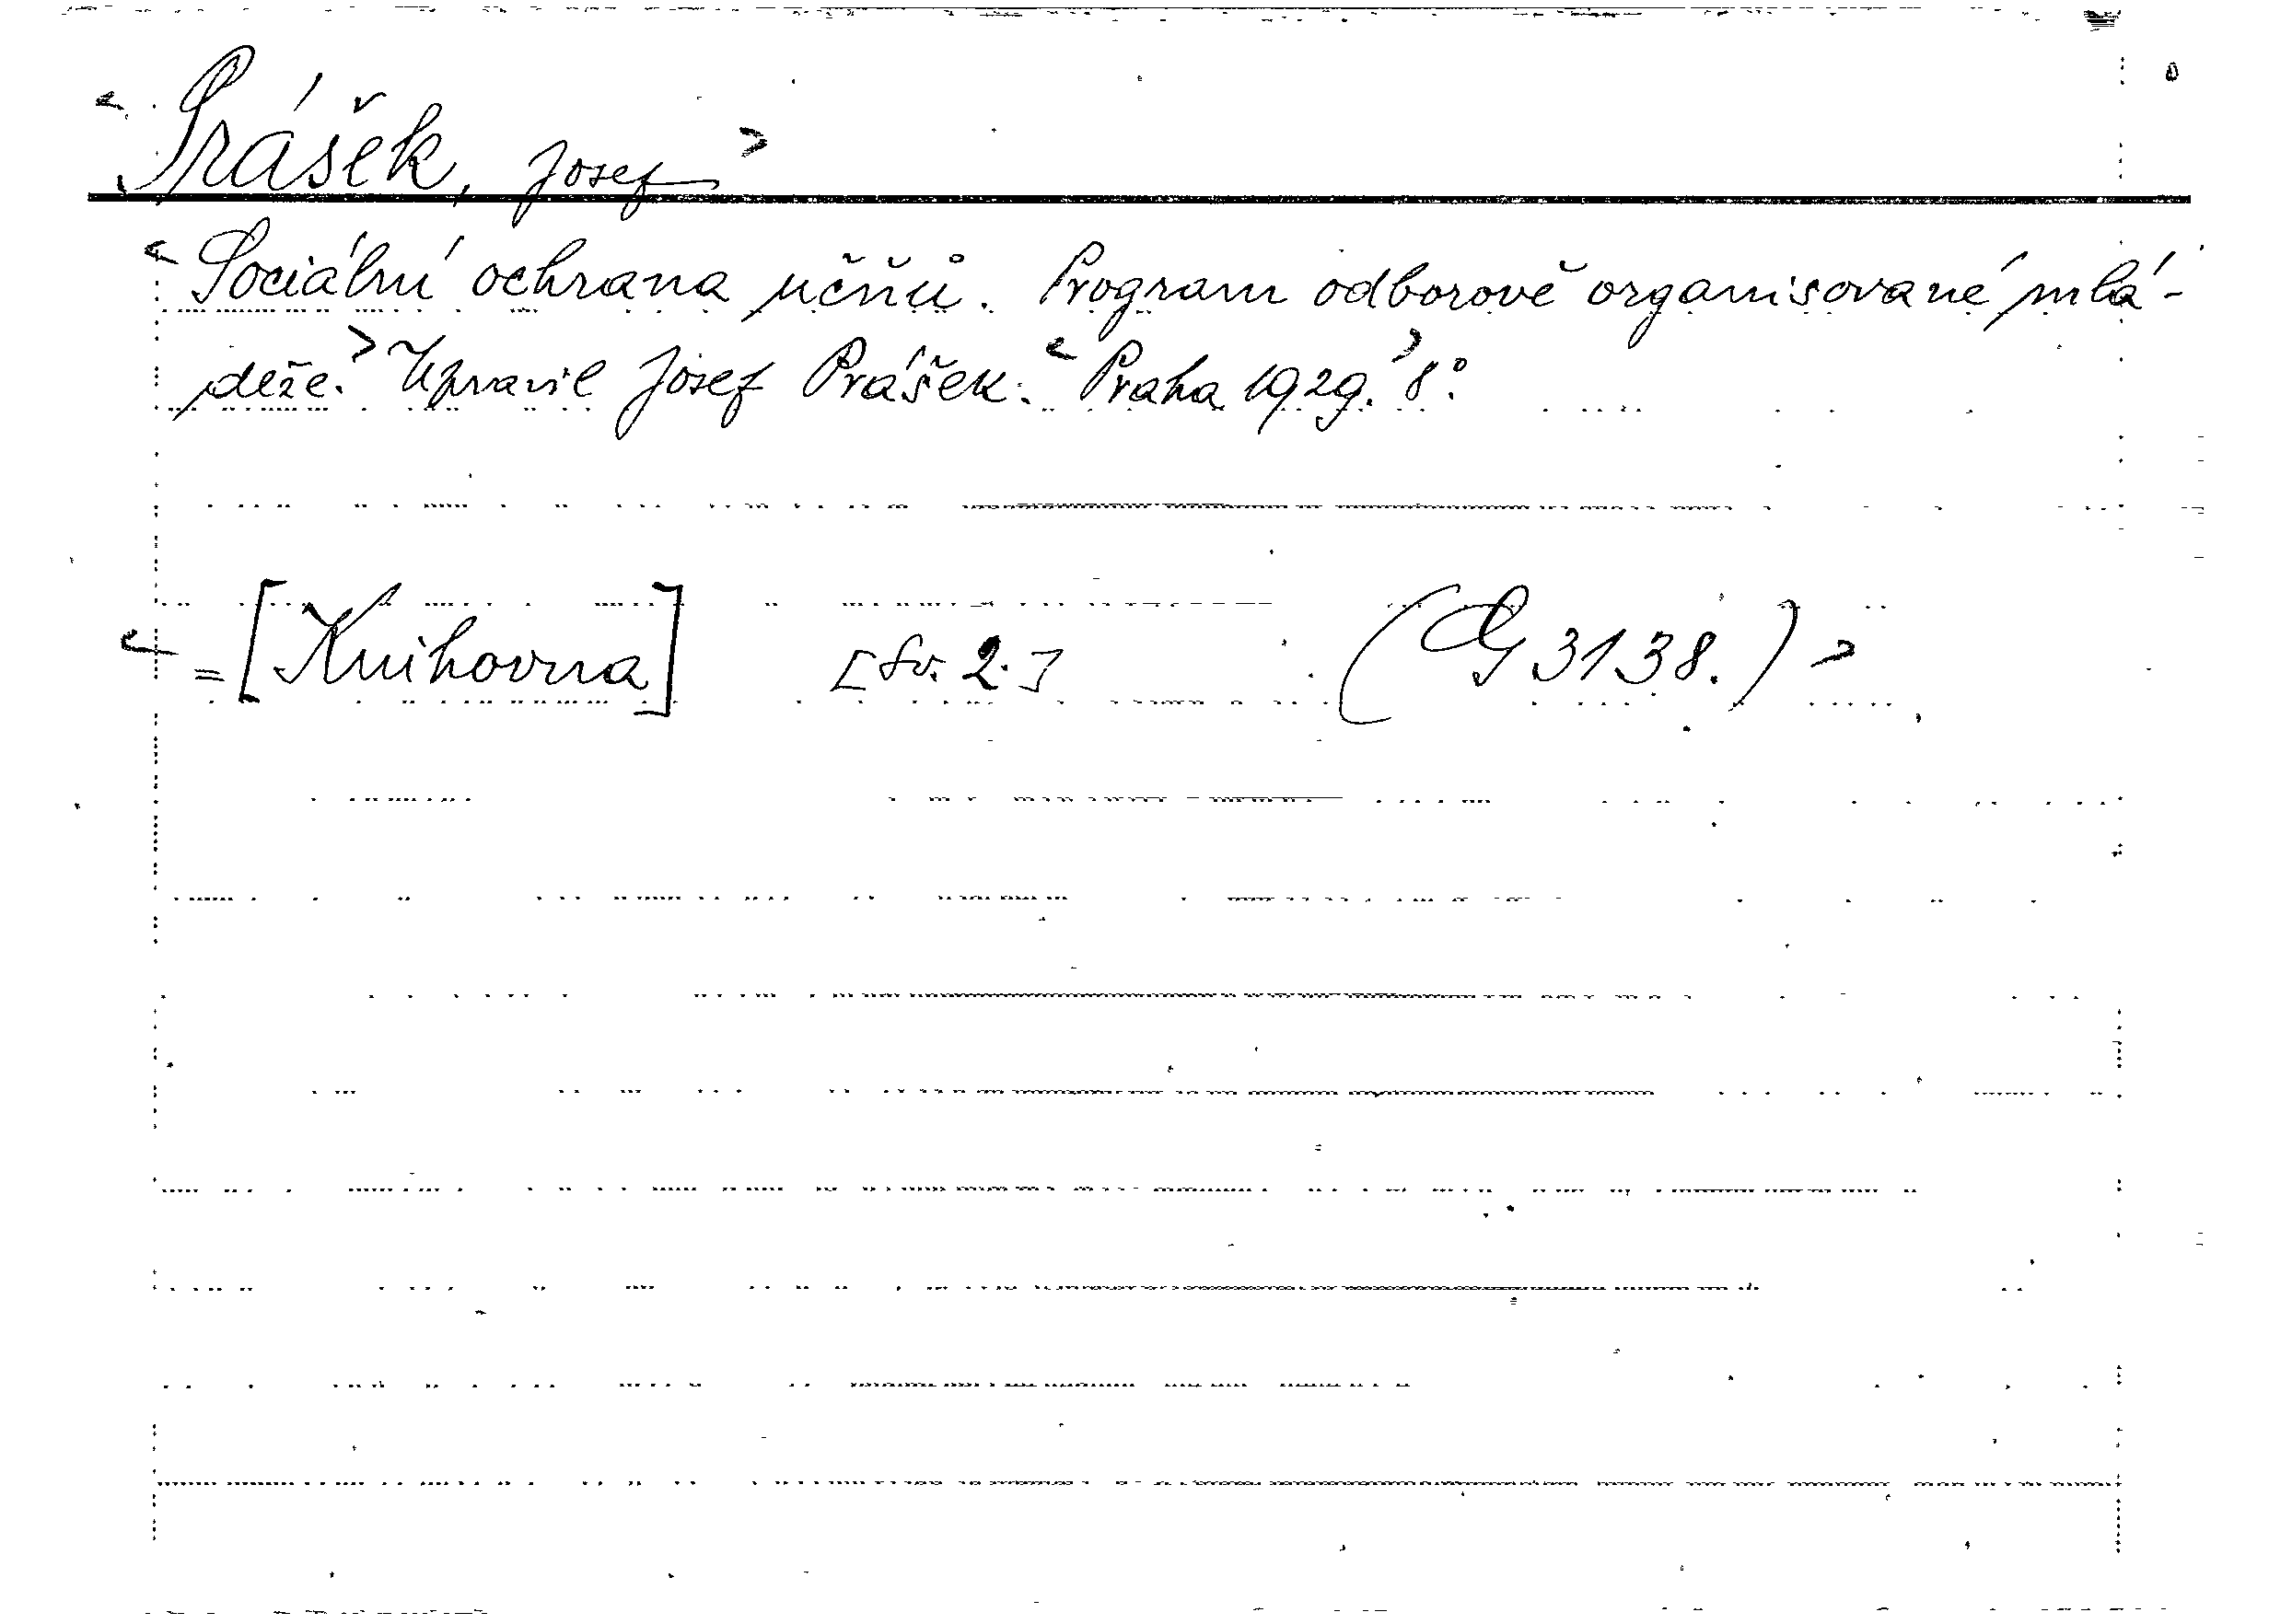 <Prášek, Josef>
<Sociální ochrana učňů. Program odborově organisované mlá-
deže.> Upravil Josef Prášek. <Praha 1929.> 8°.
<=[Knihovna] [Sv. 2.] (G 3138.)>